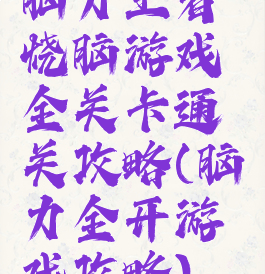 脑力王者
烧脑游戏
全关卡通
关攻略(脑
力全开游
戏攻略)